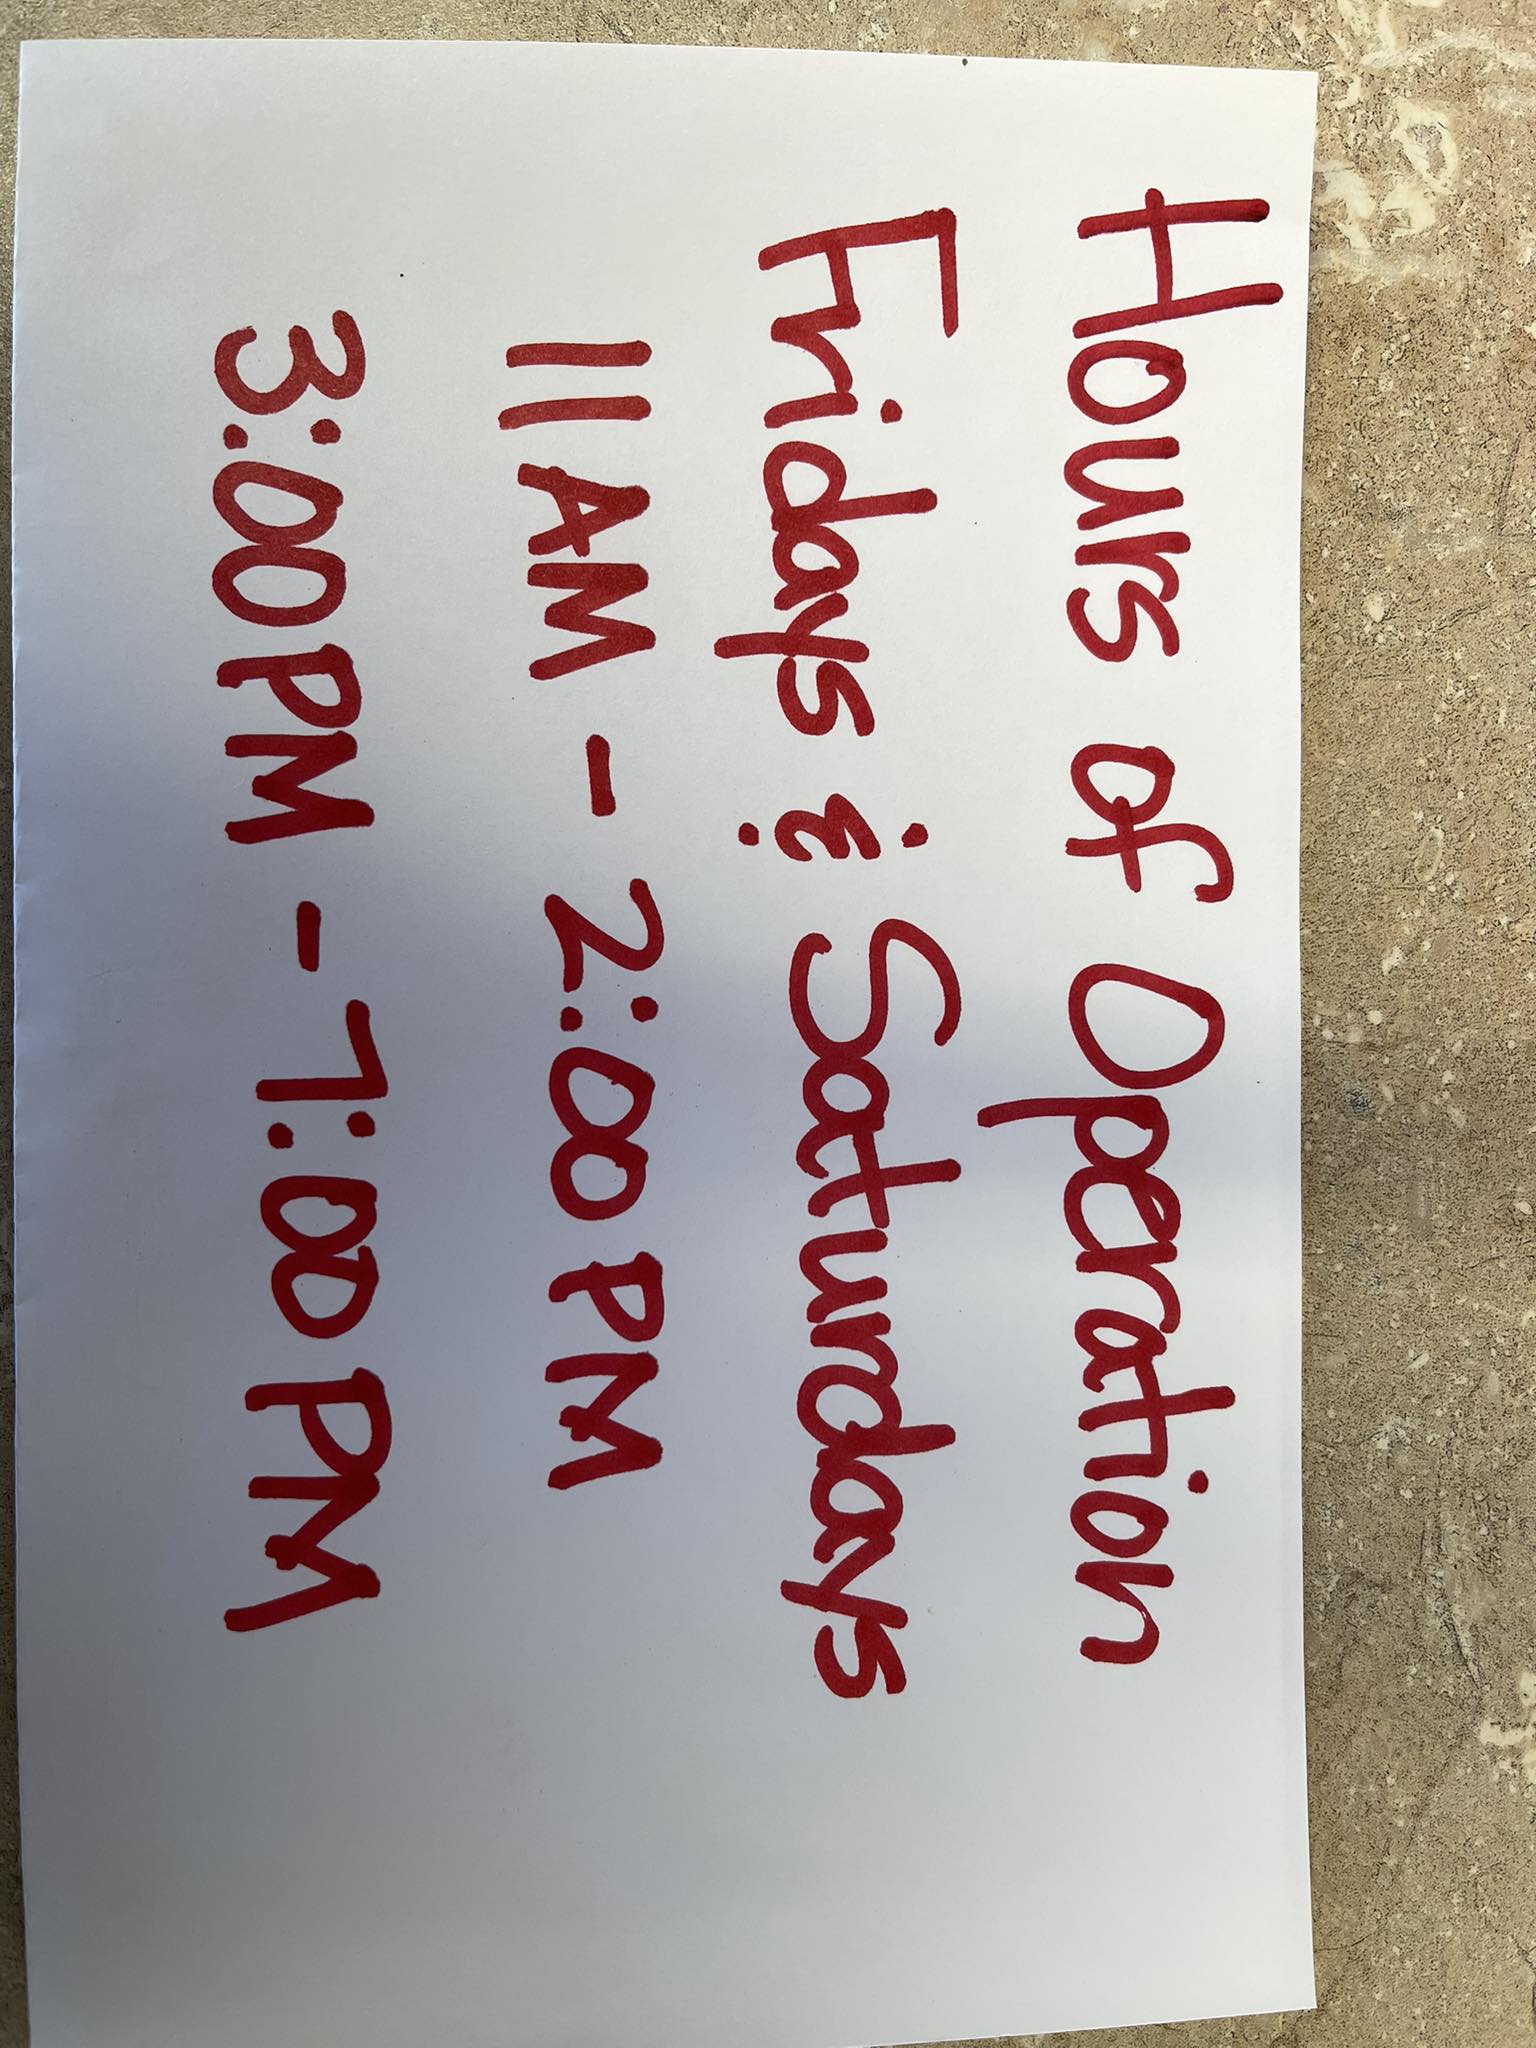 Hours of Operation
Fridays & Saturdays
11 AM - 2:00 PM
3:00 PM - 7:00 PM